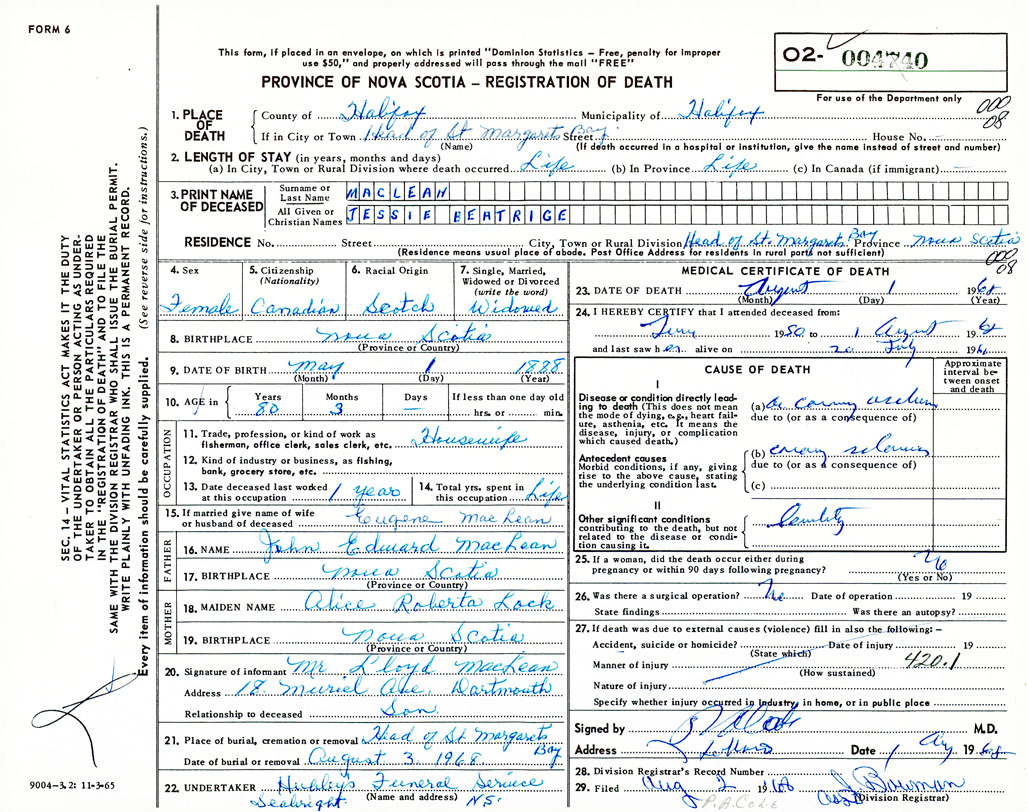 FORM 6
O2- 004740
This form, if placed in an envelope, on which is printed "Dominion Statistics – Free, penalty for improper
use $50," and properly addressed will pass through the mail "FREE"
PROVINCE OF NOVA SCOTIA – REGISTRATION OF DEATH
For use of the Department only
000
08
1. PLACE OF DEATH
County of Halifax Municipality of Halifax
If in City or Town Head of St Margarets Bay Street House No.
(Name) (If death occurred in a hospital or institution, give the name instead of street and number)
2. LENGTH OF STAY (in years, months and days)
(a) In City, Town or Rural Division where death occurred Life (b) In Province Life (c) In Canada (if immigrant)
3. PRINT NAME OF DECEASED
Surname or Last Name MACLEAN
All Given or Christian Names JESSIE BEATRICE
RESIDENCE No. Street City, Town or Rural Division Head of St. Margarets Bay Province Nova Scotia
(Residence means usual place of abode. Post Office Address for residents in rural parts not sufficient)
000
08
4. Sex Female
5. Citizenship (Nationality) Canadian
6. Racial Origin Scotch
7. Single, Married, Widowed or Divorced (write the word) Widowed
8. BIRTHPLACE Nova Scotia
(Province or Country)
9. DATE OF BIRTH May 1 1888
(Month) (Day) (Year)
10. AGE in Years 80 Months 3 Days — If less than one day old
hrs. or min.
OCCUPATION
11. Trade, profession, or kind of work as
fisherman, office clerk, sales clerk, etc. Housewife
12. Kind of industry or business, as fishing,
bank, grocery store, etc.
13. Date deceased last worked at this occupation 1 year
14. Total yrs. spent in this occupation Life
15. If married give name of wife
or husband of deceased Eugene MacLean
FATHER
16. NAME John Edward MacLean
17. BIRTHPLACE Nova Scotia
(Province or Country)
MOTHER
18. MAIDEN NAME Alice Roberta Lock
19. BIRTHPLACE Nova Scotia
(Province or Country)
20. Signature of informant Mr Lloyd MacLean
Address 18 Muriel Ave. Dartmouth
Relationship to deceased Son
21. Place of burial, cremation or removal Head of St. Margarets Bay
Date of burial or removal August 3 1968
22. UNDERTAKER Hubley's Funeral Service
(Name and address)
Seabright NS.
MEDICAL CERTIFICATE OF DEATH
23. DATE OF DEATH August 1 1968
(Month) (Day) (Year)
24. I HEREBY CERTIFY that I attended deceased from:
1950 to 1 August 19
and last saw her alive on July 19
CAUSE OF DEATH
Approximate interval between onset and death
I
Disease or condition directly leading
to death (This does not mean
the mode of dying, e.g., heart failure,
asthenia, etc. It means the
disease, injury, or complication
which caused death.)
(a)
due to (or as a consequence of)
Antecedent causes
Morbid conditions, if any, giving
rise to the above cause, stating
the underlying condition last.
(b)
due to (or as a consequence of)
(c)
II
Other significant conditions
contributing to the death, but not
related to the disease or condition
causing it.
Senility
25. If a woman, did the death occur either during
pregnancy or within 90 days following pregnancy? No
(Yes or No)
26. Was there a surgical operation? No Date of operation 19
State findings Was there an autopsy?
27. If death was due to external causes (violence) fill in also the following: –
Accident, suicide or homicide? Date of injury 19
(State which)
Manner of injury 420.1
(How sustained)
Nature of injury
Specify whether injury occurred in Industry, in home, or in public place
Signed by M.D.
Address Date 1 Aug 1968
28. Division Registrar's Record Number
29. Filed Aug 2 1968 J. Bowman
Division Registrar
P.A. COLE
SEC. 14 – VITAL STATISTICS ACT MAKES IT THE DUTY
OF THE UNDERTAKER OR PERSON ACTING AS UNDERTAKER
TO OBTAIN ALL THE PARTICULARS REQUIRED
IN THE "REGISTRATION OF DEATH" AND TO FILE THE
SAME WITH THE DIVISION REGISTRAR WHO SHALL ISSUE THE BURIAL PERMIT.
WRITE PLAINLY WITH UNFADING INK. THIS IS A PERMANENT RECORD.
Every item of information should be carefully supplied. (See reverse side for instructions.)
9004-3.2: 11-3-65